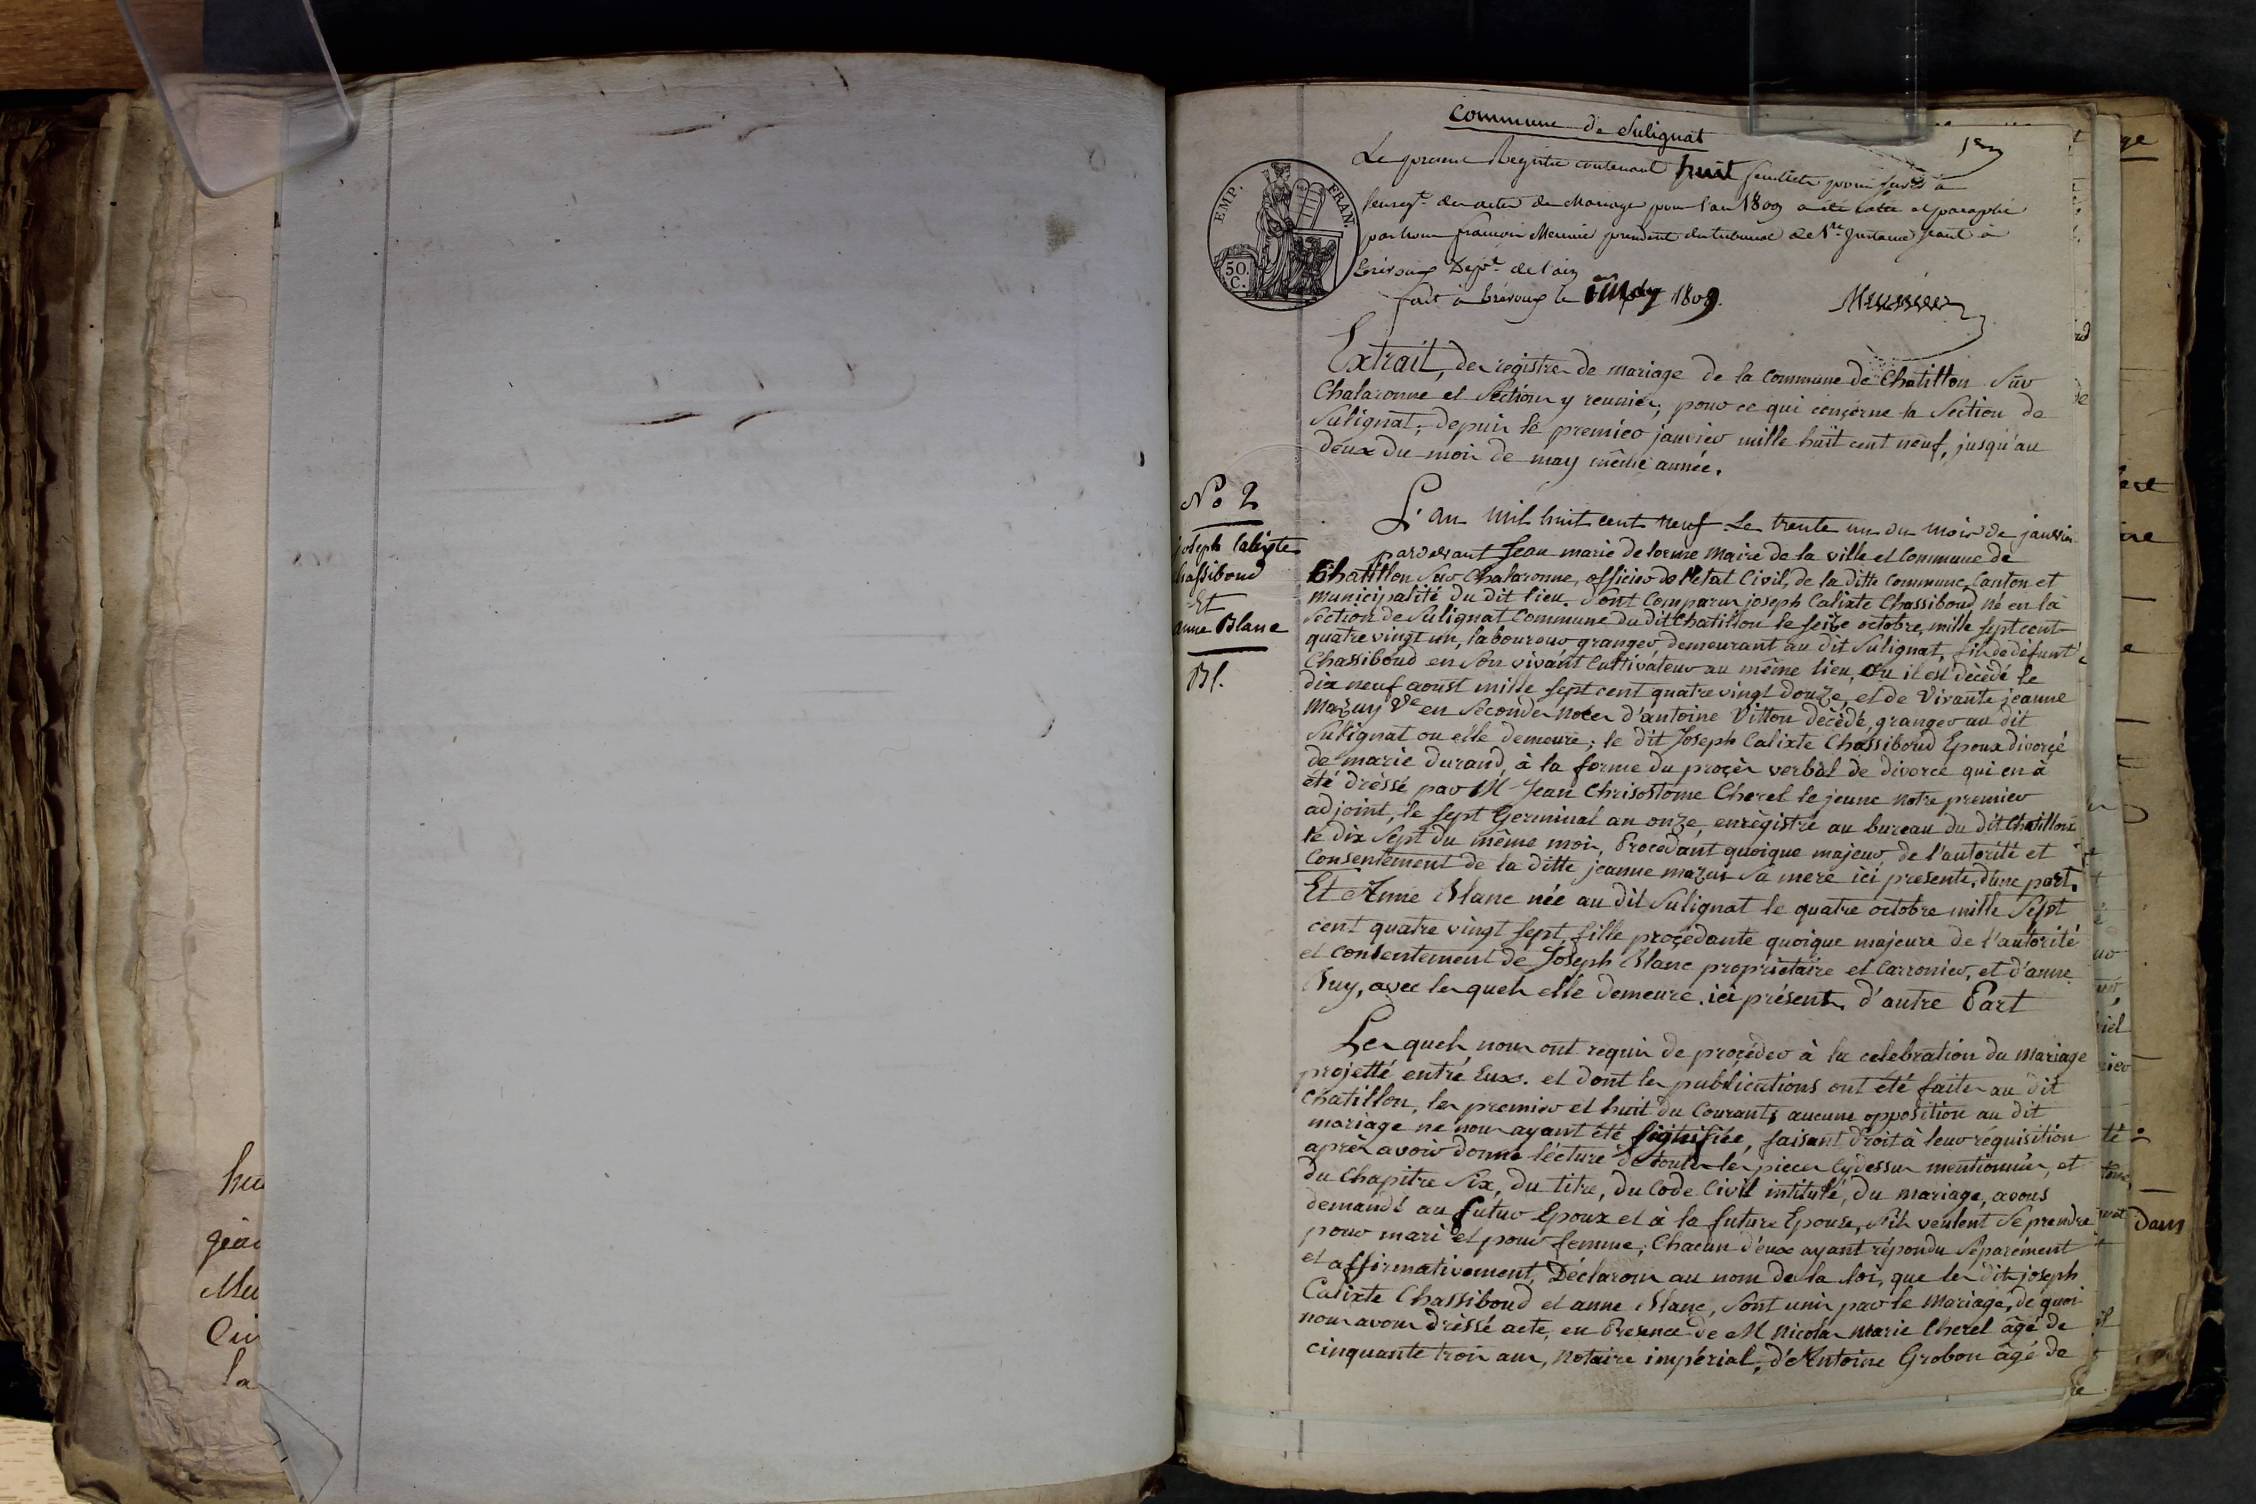 commune de Sulignat
1er
Le present Registre contenant huit feuillets pour servir à
l'enregt. des actes de Mariage pour l'an 1809 a été cotté et paraphé
par nous françois Meunier president du tribunal de 1re. Instance séant à
trévoux Dept. de l'ain
fait à trévoux le 1809.
Meunier
EMP. FRAN.
50. C.
Extrait, des registres de mariage de la Commune de Chatillon Sur
Chalaronne et Sections y reunies, pour ce qui concerne la Section de
Sulignat, depuis le premier janvier mille huit cent neuf, jusqu'au
deux du mois de may même année.
No 2
joseph Calixte
Chassiboud
Et
anne Blanc
Bl.
L'an mil huit cent neuf Le trente un du mois de janvier
pardevant Jean marie delorme Maire de la ville et Commune de
Chatillon Sur Chalaronne, officier de l'état Civil, de la ditte Commune, Canton et
municipalité du dit lieu. Sont Comparus joseph Calixte Chassiboud né en la
Section de Sulignat Commune du dit Chatillon le seize octobre, mille sept cent
quatre vingt un, laboureur granger, demeurant au dit Sulignat, fils de défunt
Chassiboud en Son vivant Cultivateur au même lieu, ou il est décédé le
dix neuf aoust mille sept cent quatre vingt douze, et de Vivante jeanne
Mazuy Ve en Secondes noces d'antoine Vitton décédé, granger au dit
Sulignat ou elle demeure; le dit Joseph Calixte Chassiboud Epoux divorcé
de marie durand, à la forme du procès verbal de divorce qui en à
été dréssé par M Jean Chrisostome Cherel le jeune notre premier
adjoint, le sept Germinal an onze, enregistré au bureau du dit Chatillon
le dix Sept du même mois, Procedant quoique majeur, de l'autorité et
Consentement de la ditte jeanne mazuy Sa mere ici presente, d'une part.
Et Anne Blanc née au dit Sulignat le quatre octobre mille Sept
cent quatre vingt sept, fille procedante quoique majeure de l'autorité
et consentement de Joseph Blanc propriétaire et Carronier, et d'anne
Buy, avec les quels elle demeure, ici présents, d'autre Part
Les quels nous ont requis de procéder à la celebration du mariage
projetté entre Eux. et dont les publications ont été faites au dit
Chatillon, les premier et huit du Courant, aucune opposition au dit
mariage ne nous ayant été signifiée, faisant droit à leur réquisition
après avoir donné lécture de toutes les pieces Cydessus mentionnées, et
du Chapitre Six, du titre, du Code Civil intitulé, du mariage, avons
demandé au futur Epoux et à la future Epouse, s'ils veulent Se prendre
pour mari et pour femme; Chacun d'eux ayant répondu Séparément
et affirmativement, Déclarons au nom de la loi, que les dits joseph
Calixte Chassiboud et anne Blanc, sont unis par le Mariage, de quoi
nous avons dréssé acte, en Presence de M Nicolas marie Cherel âgé de
cinquante trois ans, notaire impérial, d'Antoine Grobon âgé de
dans